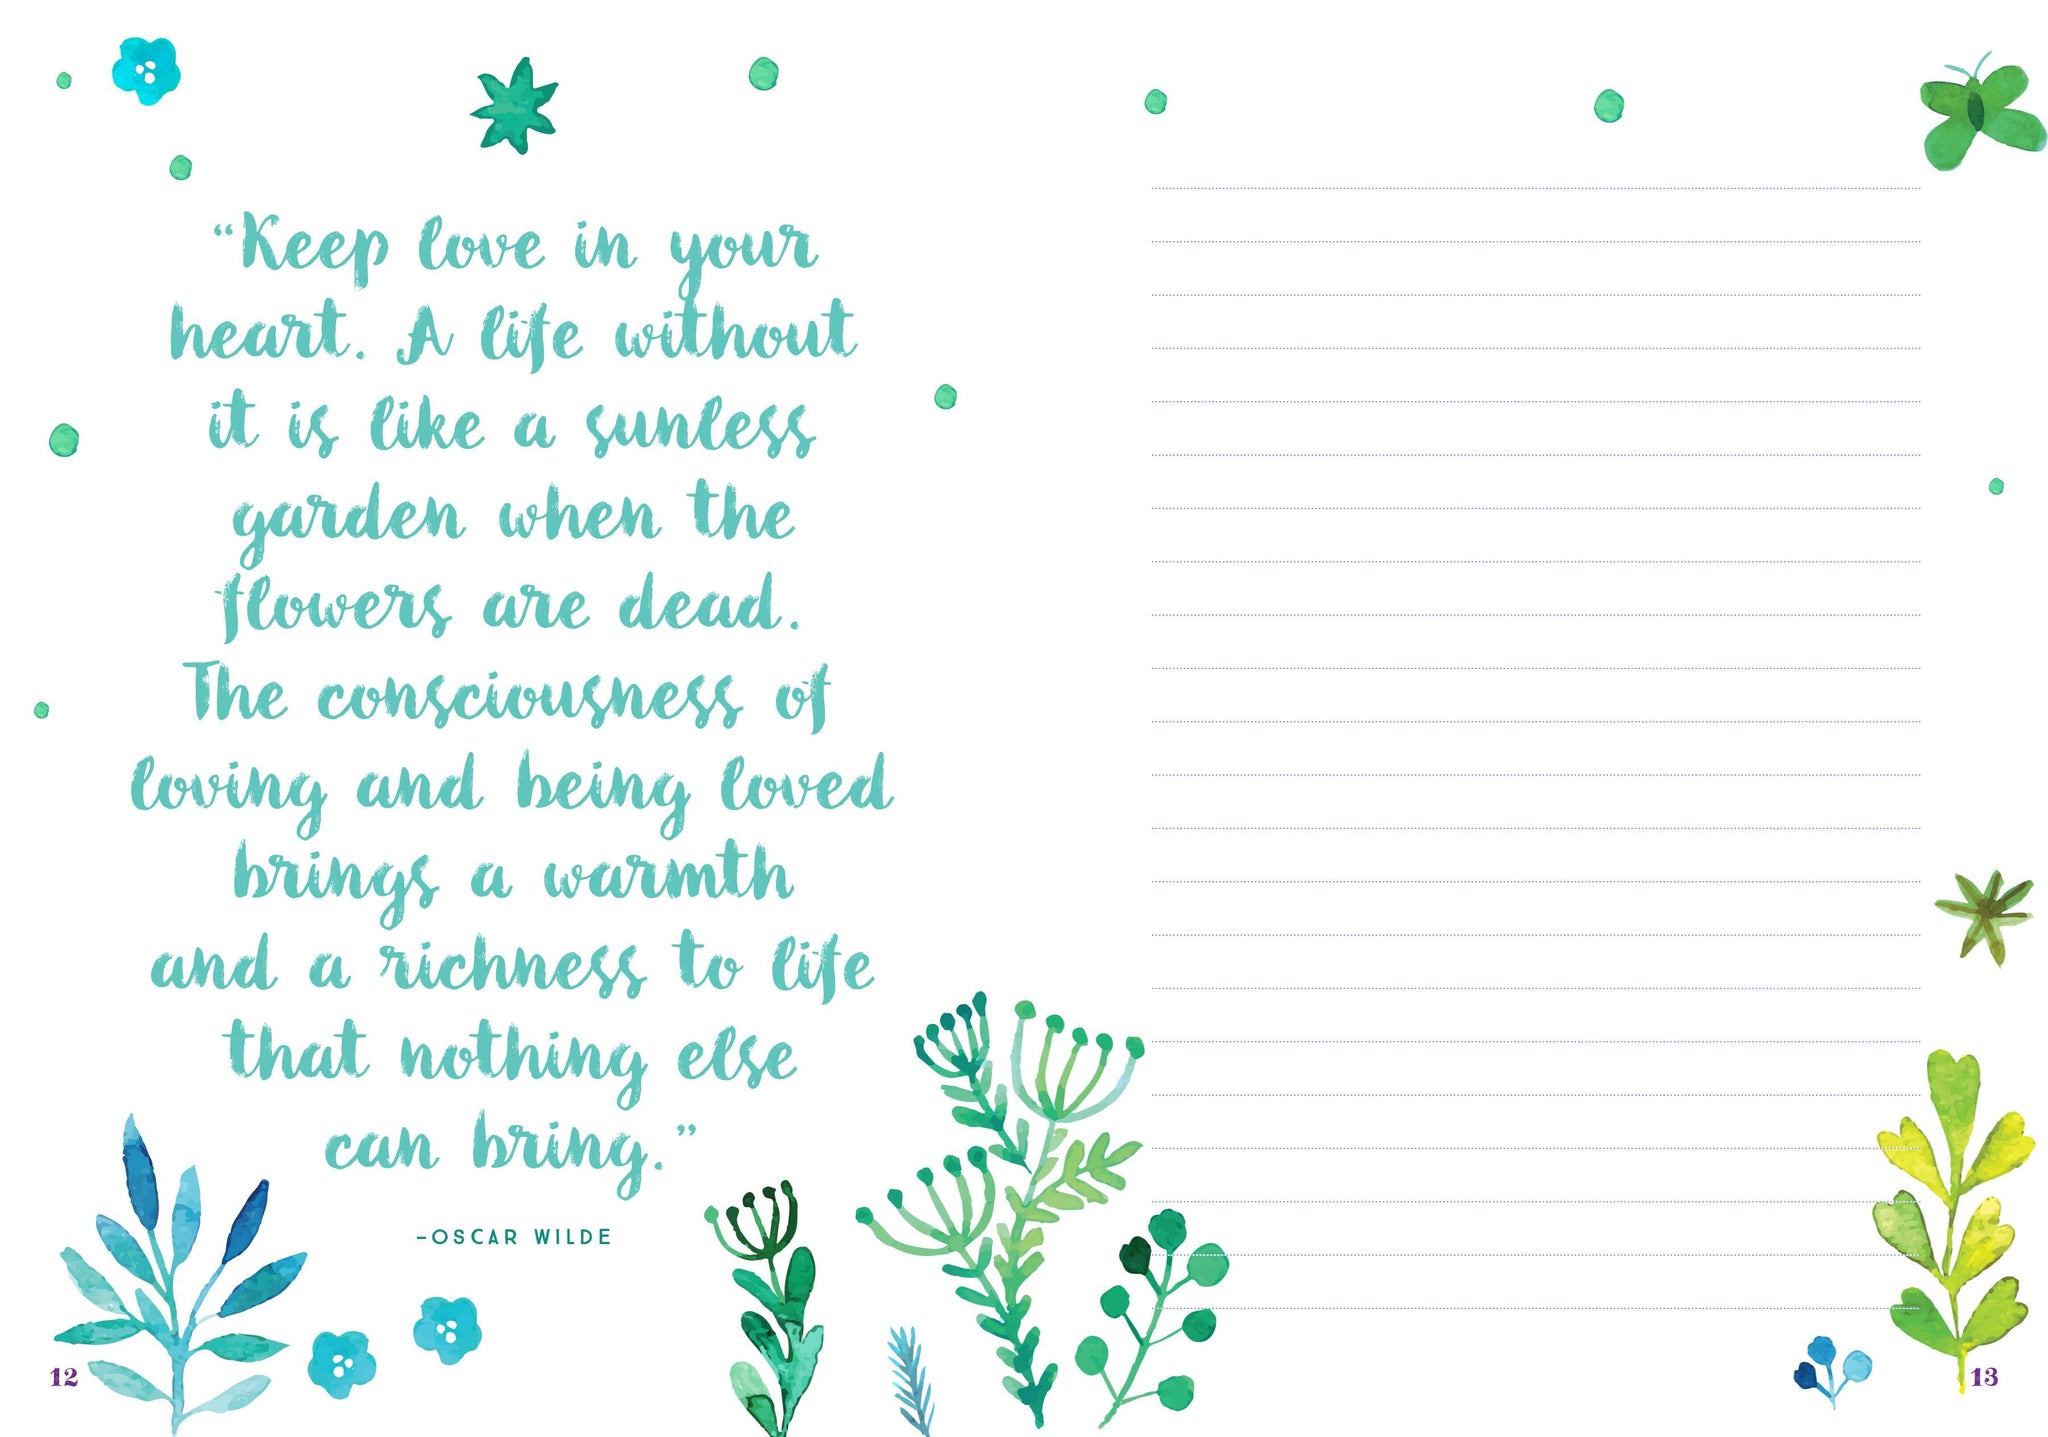 “Keep love in your
heart. A life without
it is like a sunless
garden when the
flowers are dead.
The consciousness of
loving and being loved
brings a warmth
and a richness to life
that nothing else
can bring.”
–OSCAR WILDE
12
13